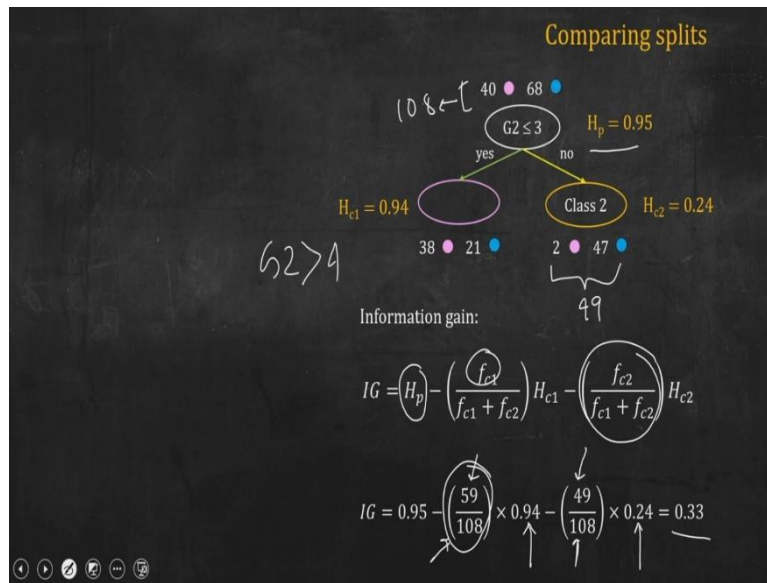 Comparing splits
108 ← [ 40 68
G2 ≤ 3
H_p = 0.95
yes no
H_c1 = 0.94
Class 2
H_c2 = 0.24
38 21 2 47
G2>4
49
Information gain:
IG = H_p − (f_c1 / (f_c1 + f_c2)) H_c1 − (f_c2 / (f_c1 + f_c2)) H_c2
IG = 0.95 − (59/108) × 0.94 − (49/108) × 0.24 = 0.33